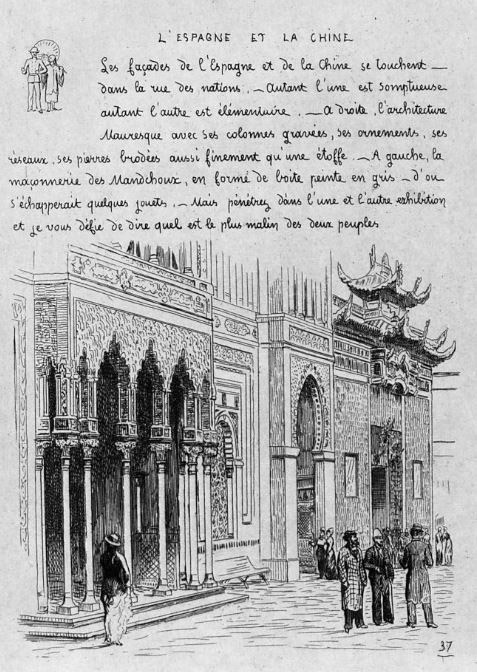 L'ESPAGNE ET LA CHINE
Les façades de l'Espagne et de la Chine se touchent —
dans la rue des nations. — Autant l'une est somptueuse
autant l'autre est élémentaire. — A droite, l'architecture
Mauresque avec ses colonnes gravées, ses ornements, ses
réseaux, ses pierres brodées aussi finement qu'une étoffe. — A gauche, la
maçonnerie des Mandchoux, en forme de boite peinte en gris — d'ou
s'échapperait quelques jouets. — Mais pénétrez dans l'une et l'autre exhibition
et je vous défie de dire quel est le plus malin des deux peuples
37